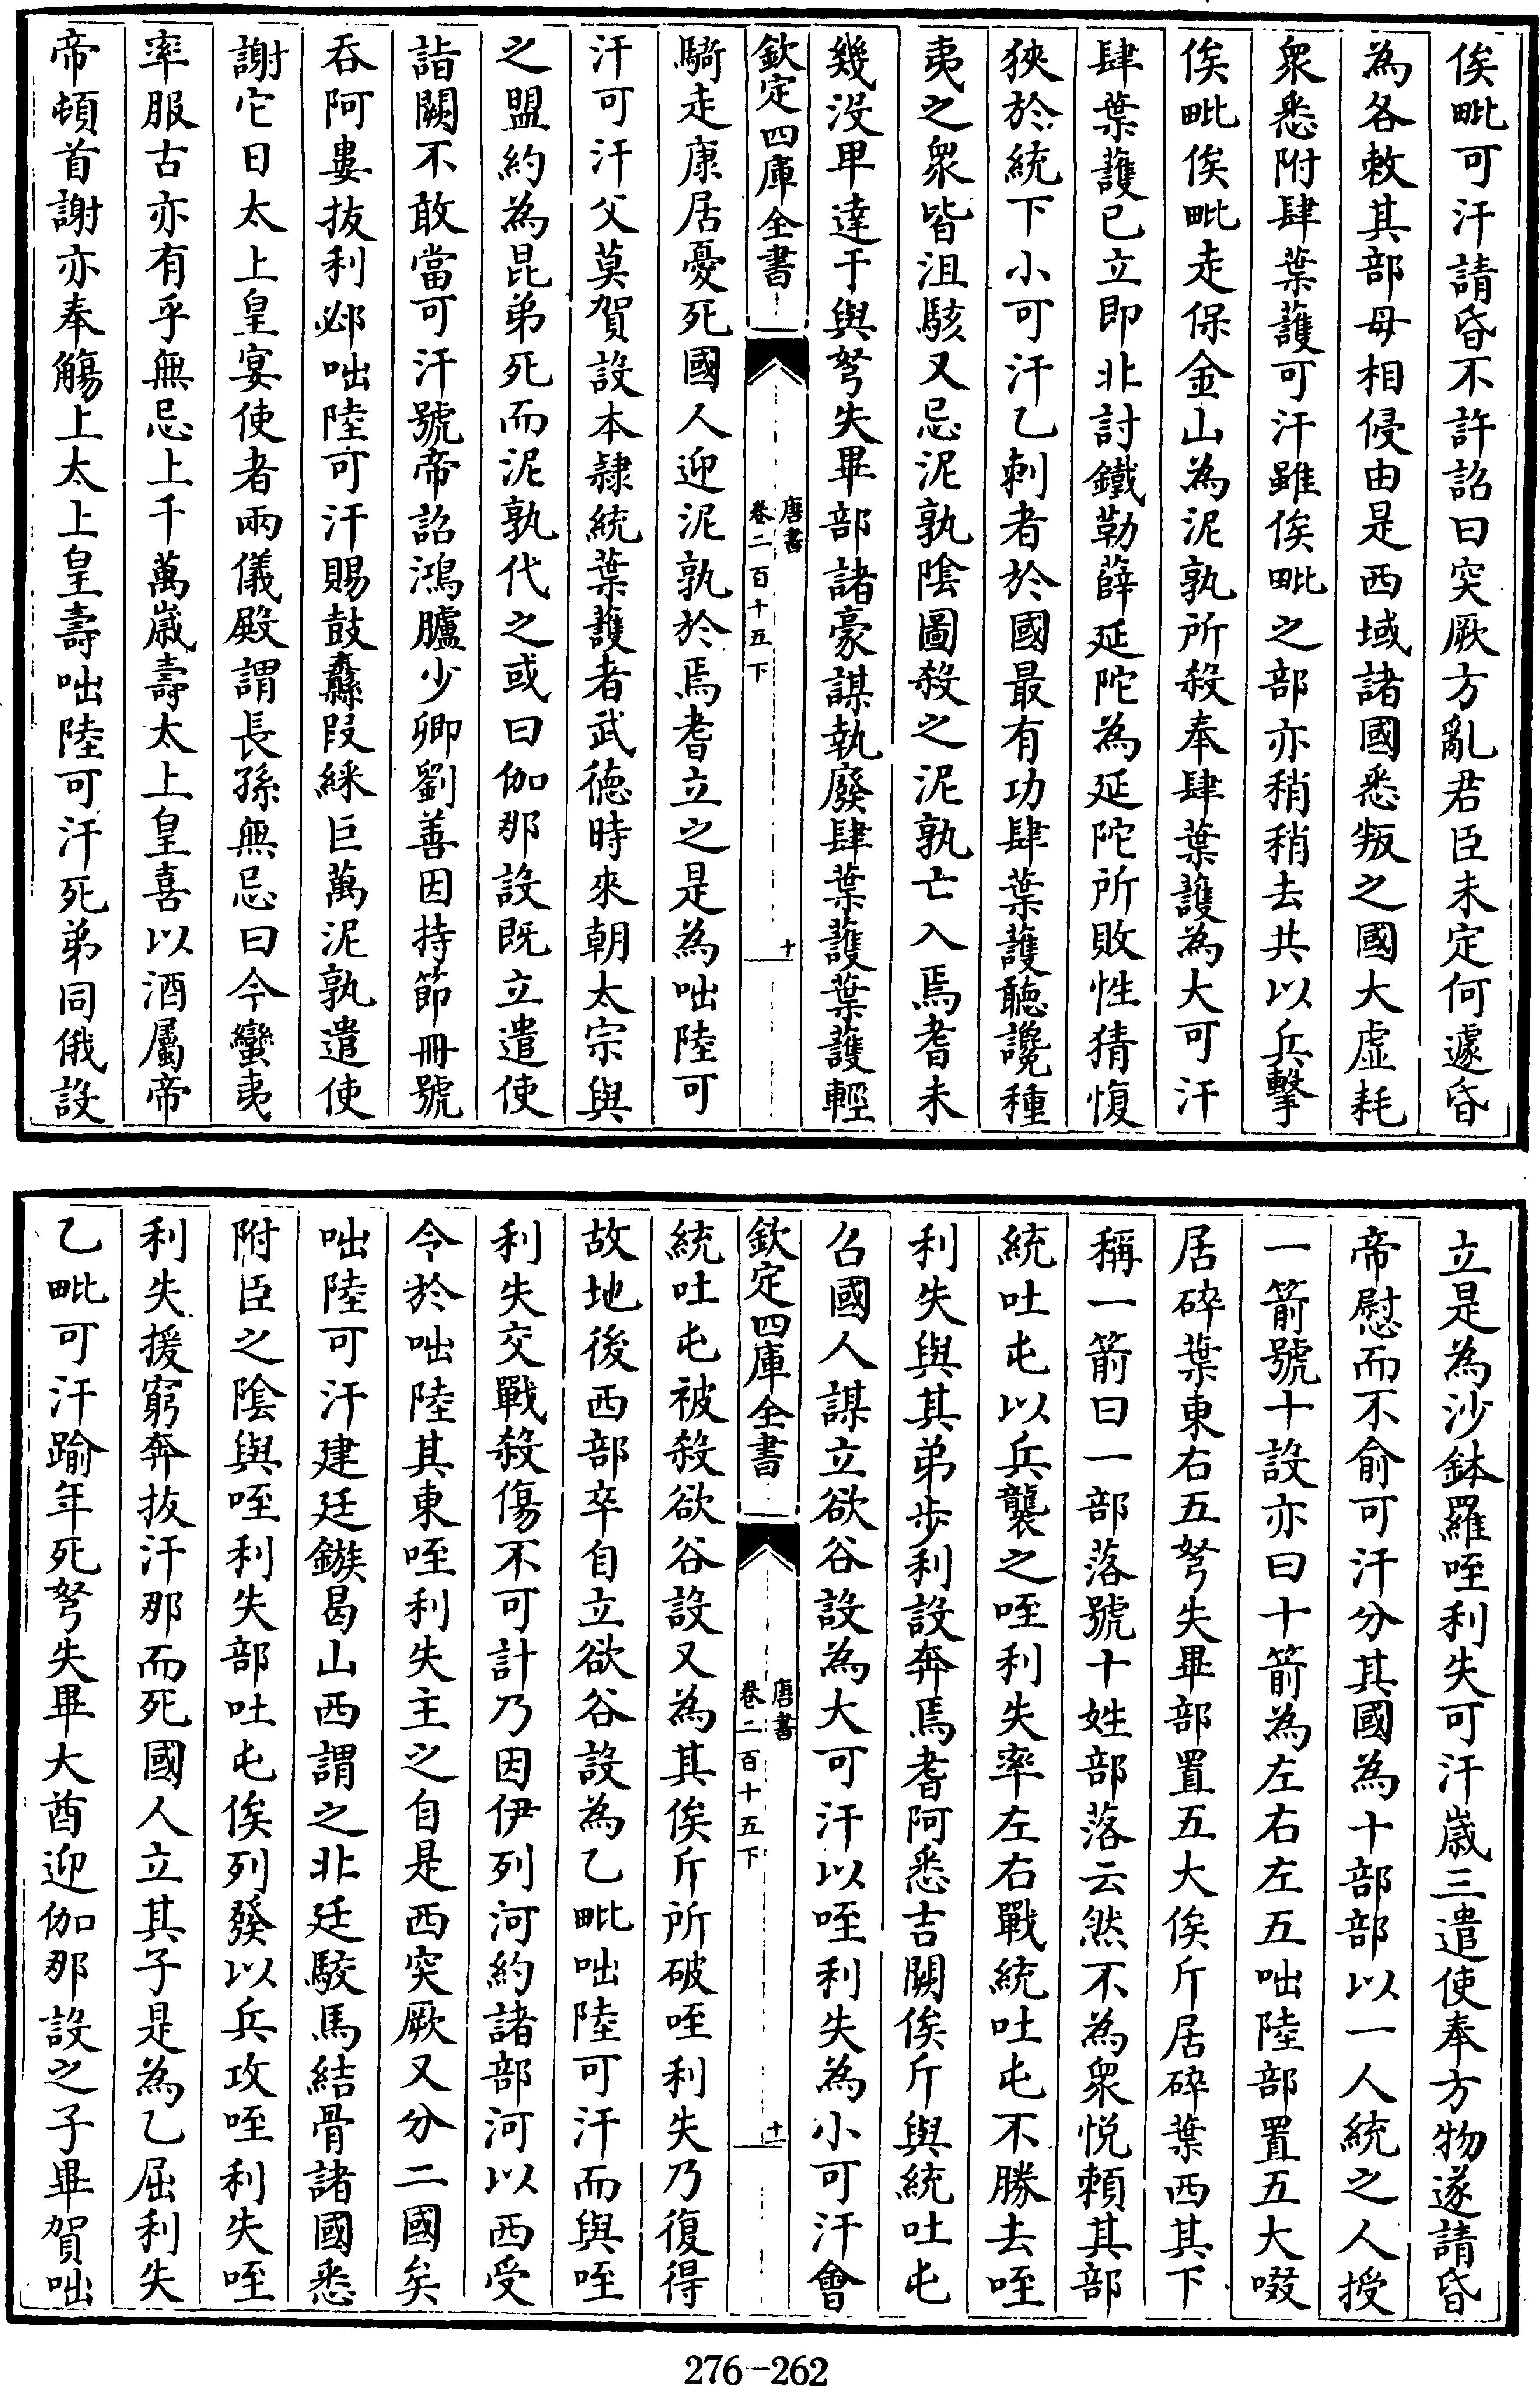 俟毗可汗請昏不許詔曰突厥方亂君臣未定何遽昏
為各敕其部毋相侵由是西域諸國悉叛之國大虛耗
衆悉附肆葉護可汗雖俟毗之部亦稍稍去共以兵擊
俟毗俟毗走保金山為泥孰所殺奉肆葉護為大可汗
肆葉護已立即北討鐵勒薛延陀為延陀所敗性猜愎
狹於統下小可汗乙利者於國最有功肆葉護聽讒種
夷之衆皆沮駭又忌泥孰陰圖殺之泥孰亡入焉耆未
幾没卑達干與弩失畢部諸豪謀執廢肆葉護葉護輕
欽定四庫全書
唐書
卷二百十五下
十
騎走康居憂死國人迎泥孰於焉耆立之是為咄陸可
汗可汗父莫賀設本隸統葉護者武德時來朝太宗與
之盟約為昆弟死而泥孰代之或曰伽那設既立遣使
詣闕不敢當可汗號帝詔鴻臚少卿劉善因持節冊號
吞阿婁拔利邲咄陸可汗賜鼓纛段綵巨萬泥孰遣使
謝它日太上皇宴使者兩儀殿謂長孫無忌曰今蠻夷
率服古亦有乎無忌上千萬歲壽太上皇喜以酒屬帝
帝頓首謝亦奉觴上太上皇壽咄陸可汗死弟同俄設
立是為沙鉢羅咥利失可汗歲三遣使奉方物遂請昏
帝慰而不俞可汗分其國為十部部以一人統之人授
一箭號十設亦曰十箭為左右左五咄陸部置五大啜
居碎葉東右五弩失畢部置五大俟斤居碎葉西其下
稱一箭曰一部落號十姓部落云然不為衆悅賴其部
統吐屯以兵襲之咥利失率左右戰統吐屯不勝去咥
利失與其弟步利設奔焉耆阿悉吉闕俟斤與統吐屯
召國人謀立欲谷設為大可汗以咥利失為小可汗會
欽定四庫全書
唐書
卷二百十五下
十一
統吐屯被殺欲谷設又為其俟斤所破咥利失乃復得
故地後西部卒自立欲谷設為乙毗咄陸可汗而與咥
利失交戰殺傷不可計乃因伊列河約諸部河以西受
令於咄陸其東咥利失主之自是西突厥又分二國矣
咄陸可汗建廷鏃曷山西謂之北廷駮馬結骨諸國悉
附臣之陰與咥利失部吐屯俟列發以兵攻咥利失咥
利失援窮奔拔汗那而死國人立其子是為乙屈利失
乙毗可汗踰年死弩失畢大酋迎伽那設之子畢賀咄
276-262